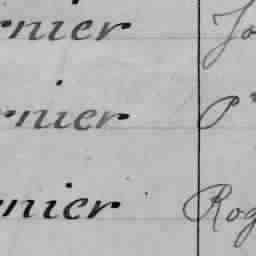 rnier Jo
rnier P
rnier Rog